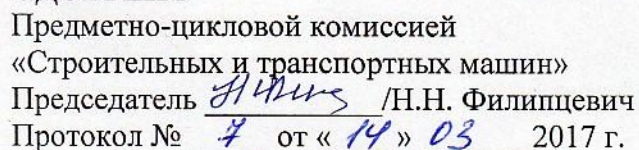 Предметно-цикловой комиссией
«Строительных и транспортных машин»
Председатель /Н.Н. Филипцевич
Протокол № 7 от « 14 » 03 2017 г.